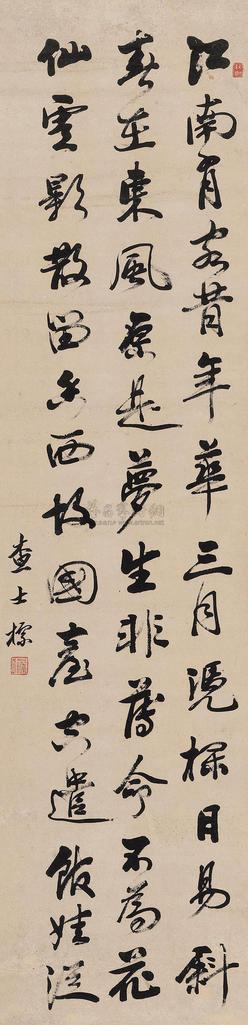 江南有客昔年華三月凭日易斜
春在東風原是夢生非薄命不為花
仙雲影散留香雨故國臺空遣館娃從
查士標